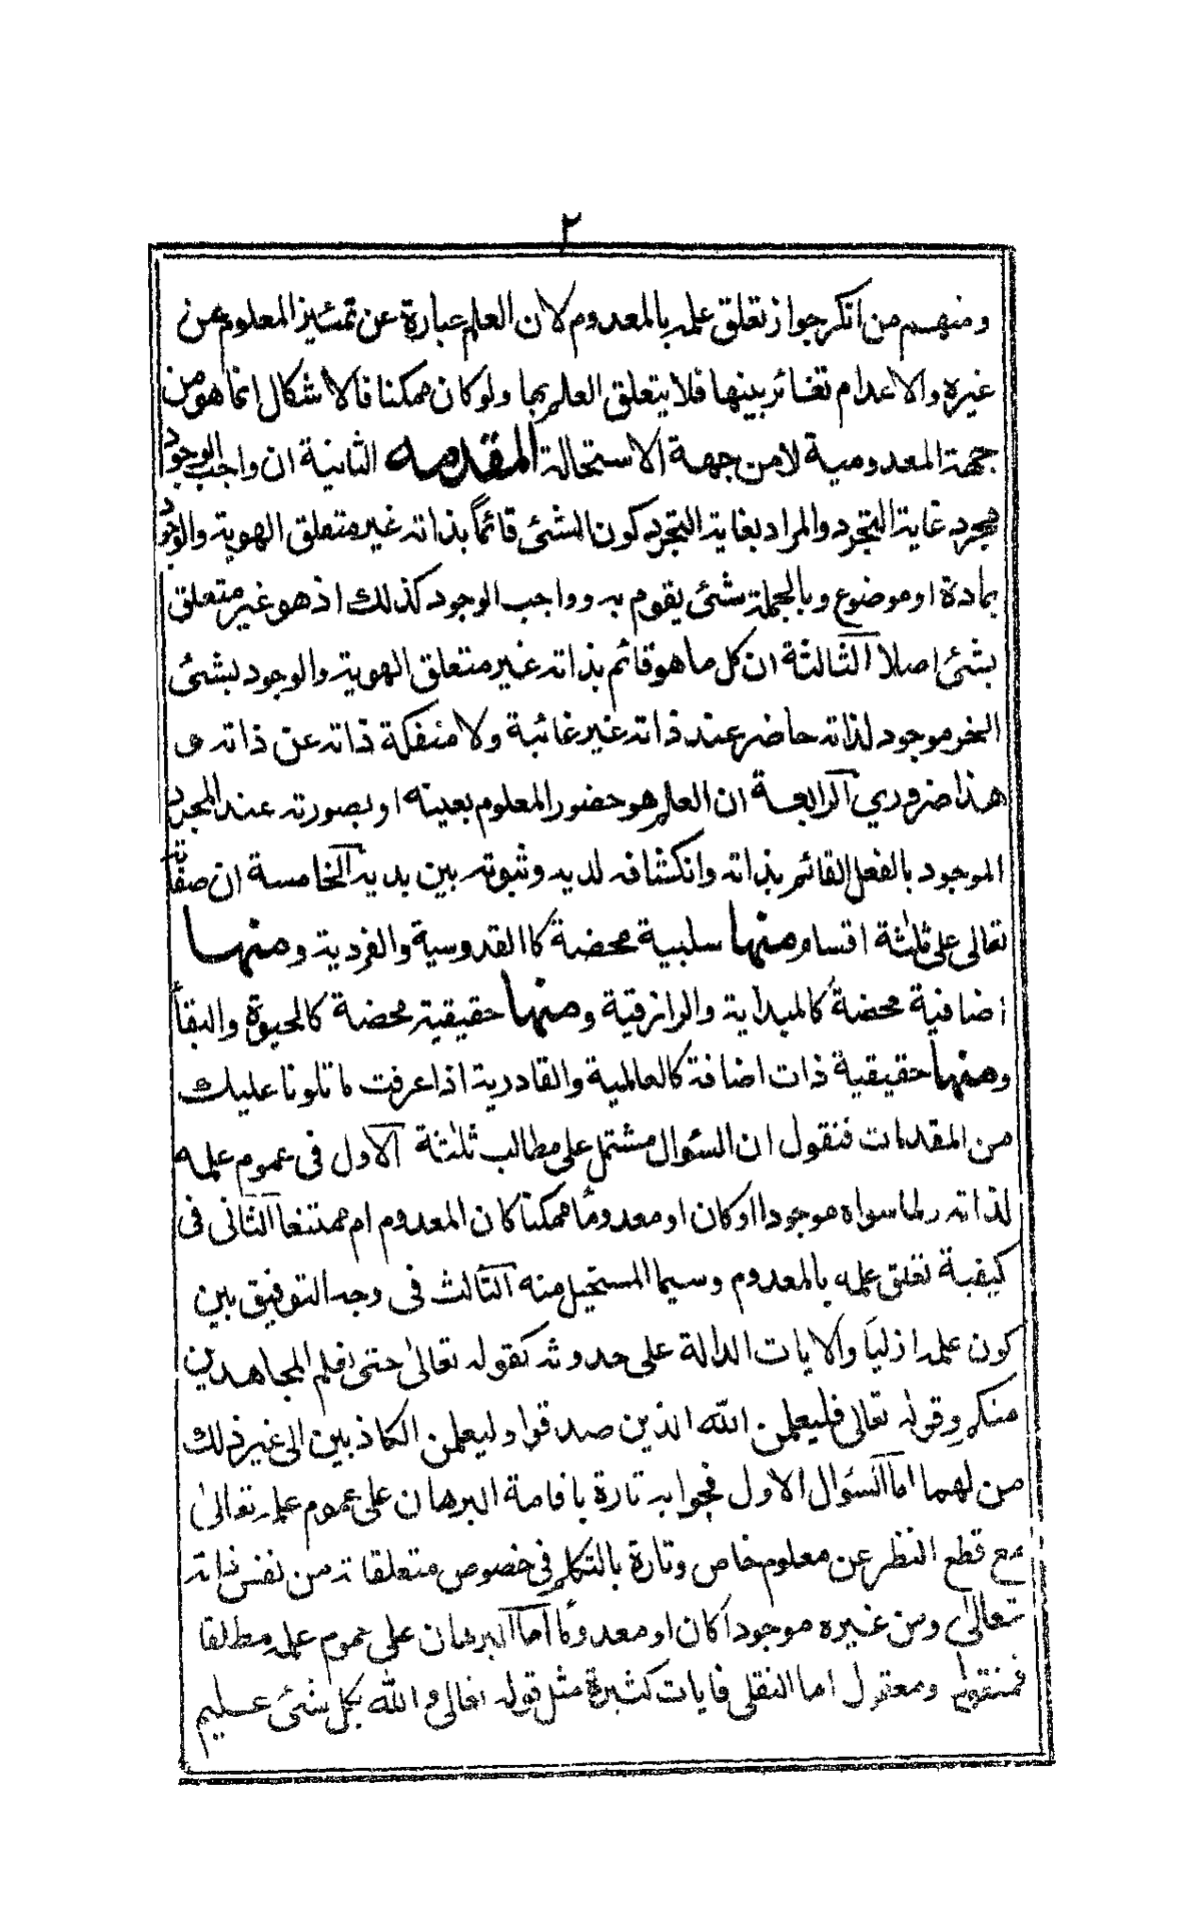 ٢
ومنهم من انكر جواز تعلق علمه بالمعدوم لان العلم عبارة عن تمييز المعلوم عن
غيره والاعدام تغائر بينها فلا يتعلق العلم بها ولو كان ممكنا فالاشكال انما هو من
جهة المعدومية لا من جهة الاستحالة المقدمه الثانية ان واجب الوجود
مجرد غاية التجرد والمراد بغاية التجرد كون الشئ قائماً بذاته غير متعلق الهوية والوجود
بمادة او موضوع وبالجملة شئ يقوم به وواجب الوجود كذلك اذ هو غير متعلق
بشئ اصلا الثالثة ان كل ما هو قائم بذاته غير متعلق الهوية والوجود بشئ
اخر موجود لذاته حاضر عند ذاته غير غائبة ولا منفكة ذاته عن ذاته و
هذا ضروري الرابعة ان العلم هو حضور المعلوم بعينه او بصورته عند المجرد
الموجود بالفعل القائم بذاته وانكشافه لديه وثبوته بين يديه الخامسة ان صفاته
تعالى على ثلٰثة اقسام منها سلبية محضة كالقدوسية والفردية ومنها
اضافية محضة كالمبدأية والرازقية ومنها حقيقية محضة كالحيوة والبقأ
ومنها حقيقية ذات اضافة كالعالمية والقادرية اذا عرفت ما تلونا عليك
من المقدمات فنقول ان السئوال مشتمل على مطالب ثلٰثة الاول فى عموم علمه
لذاته ولما سواه موجودا اوكان او معدوماً ممكنا كان المعدوم ام ممتنعا الثانى فى
كيفية تعلق علمه بالمعدوم وسيما المستحيل منه الثالث فى وجه التوفيق بين
كون علمه ازلياً والايات الدالة على حدوثه كقوله تعالىٰ حتى نعلم المجاهدين
منكم وقوله تعالى فليعلمن الله الذين صدقوا وليعلمن الكاذبين الى غير ذلك
من لهما اما السئوال الاول فجوابه تارة باقامة البرهان على عموم علمه تعالىٰ
مع قطع النظر عن معلوم خاص وتارة بالتكلم فى خصوص متعلقاته من نفس ذاته
تعالىٰ ومن غيره موجودا كان او معدوماً اما البرهان على عموم علمه مطلقا
فمنقول ومعقول اما النقلى فايات كثيرة مثل قوله تعالى والله بكل شئ عليم